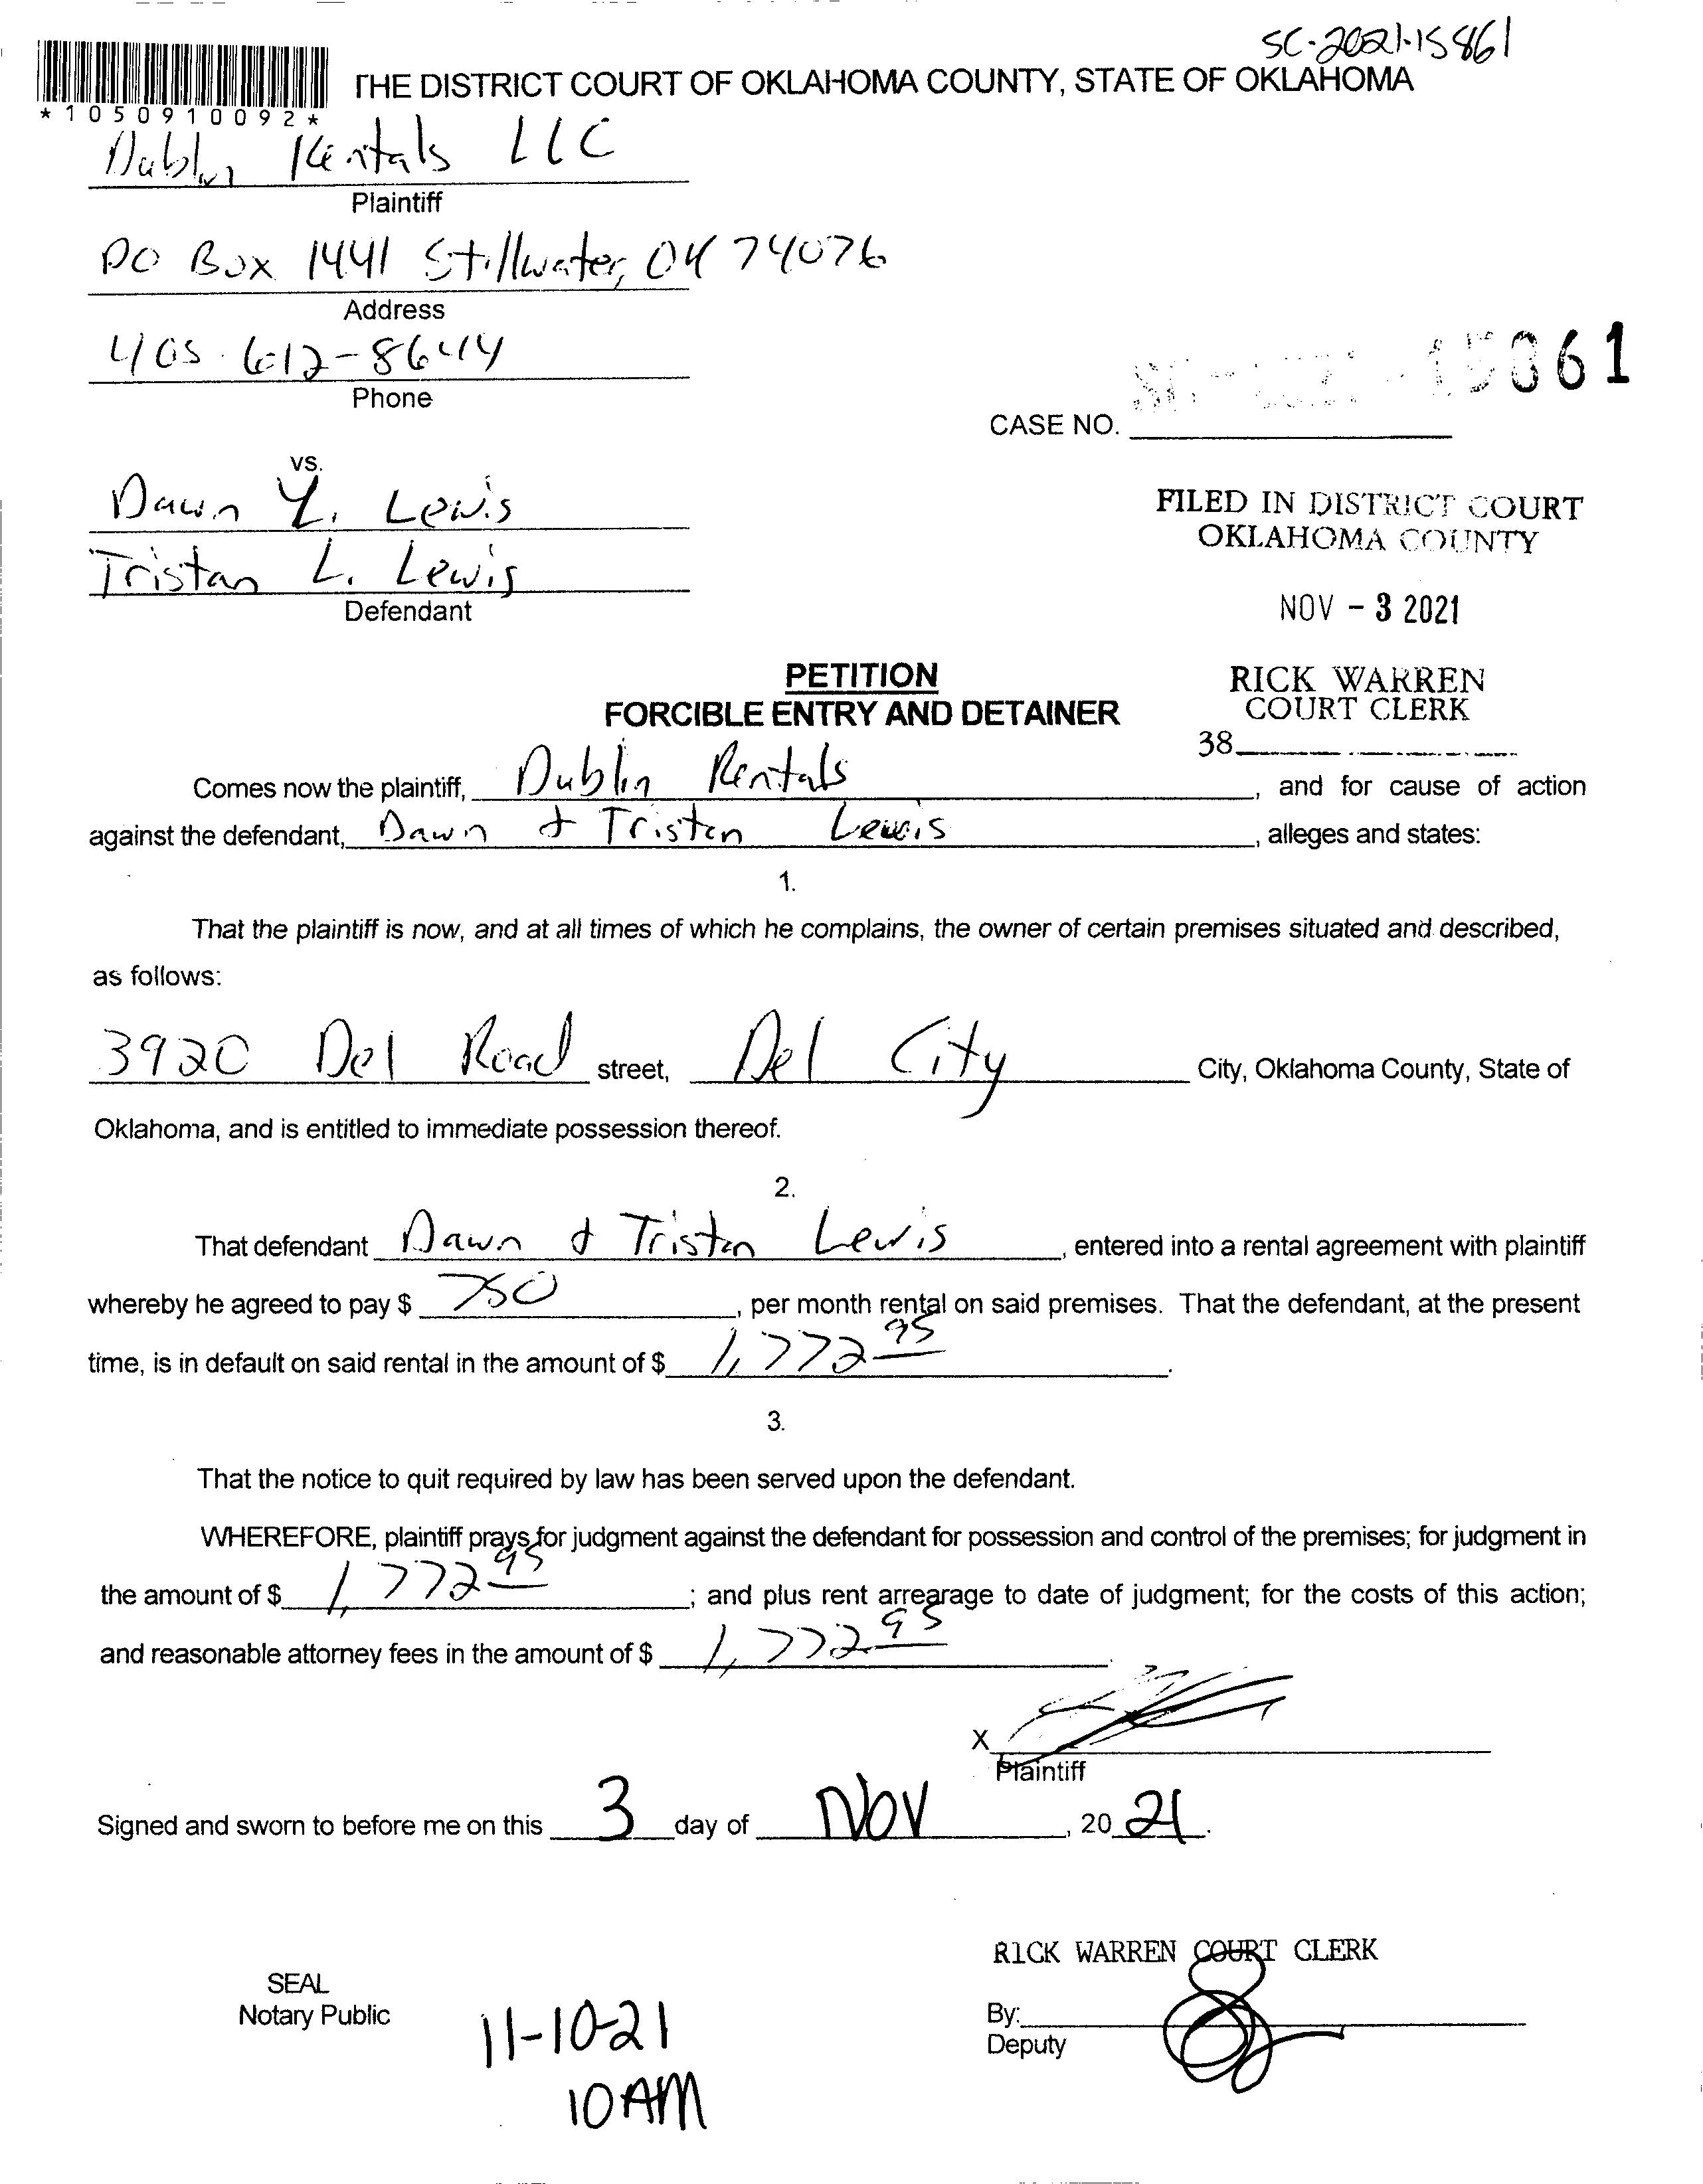 SC-2021-15861
THE DISTRICT COURT OF OKLAHOMA COUNTY, STATE OF OKLAHOMA
*1050910092*
Dublin Rentals LLC
Plaintiff
PO Box 1441 Stillwater, OK 74076
Address
405-612-8644
Phone
15861
CASE NO.
vs.
Dawn Y. Lewis
Tristan L. Lewis
Defendant
FILED IN DISTRICT COURT
OKLAHOMA COUNTY
NOV - 3 2021
RICK WARREN
COURT CLERK
38
PETITION
FORCIBLE ENTRY AND DETAINER
Comes now the plaintiff, Dublin Rentals, and for cause of action
against the defendant, Dawn & Tristan Lewis, alleges and states:
1.
That the plaintiff is now, and at all times of which he complains, the owner of certain premises situated and described,
as follows:
3920 Del Road street, Del City City, Oklahoma County, State of
Oklahoma, and is entitled to immediate possession thereof.
2.
That defendant Dawn & Tristan Lewis, entered into a rental agreement with plaintiff
whereby he agreed to pay $ 750, per month rental on said premises. That the defendant, at the present
time, is in default on said rental in the amount of $ 1,772 95.
3.
That the notice to quit required by law has been served upon the defendant.
WHEREFORE, plaintiff prays for judgment against the defendant for possession and control of the premises; for judgment in
the amount of $ 1,772 95; and plus rent arrearage to date of judgment; for the costs of this action;
and reasonable attorney fees in the amount of $ 1,772 95.
X
Plaintiff
Signed and sworn to before me on this 3 day of Nov, 20 21.
RICK WARREN COURT CLERK
SEAL
Notary Public
By:
Deputy
11-10-21
10 AM